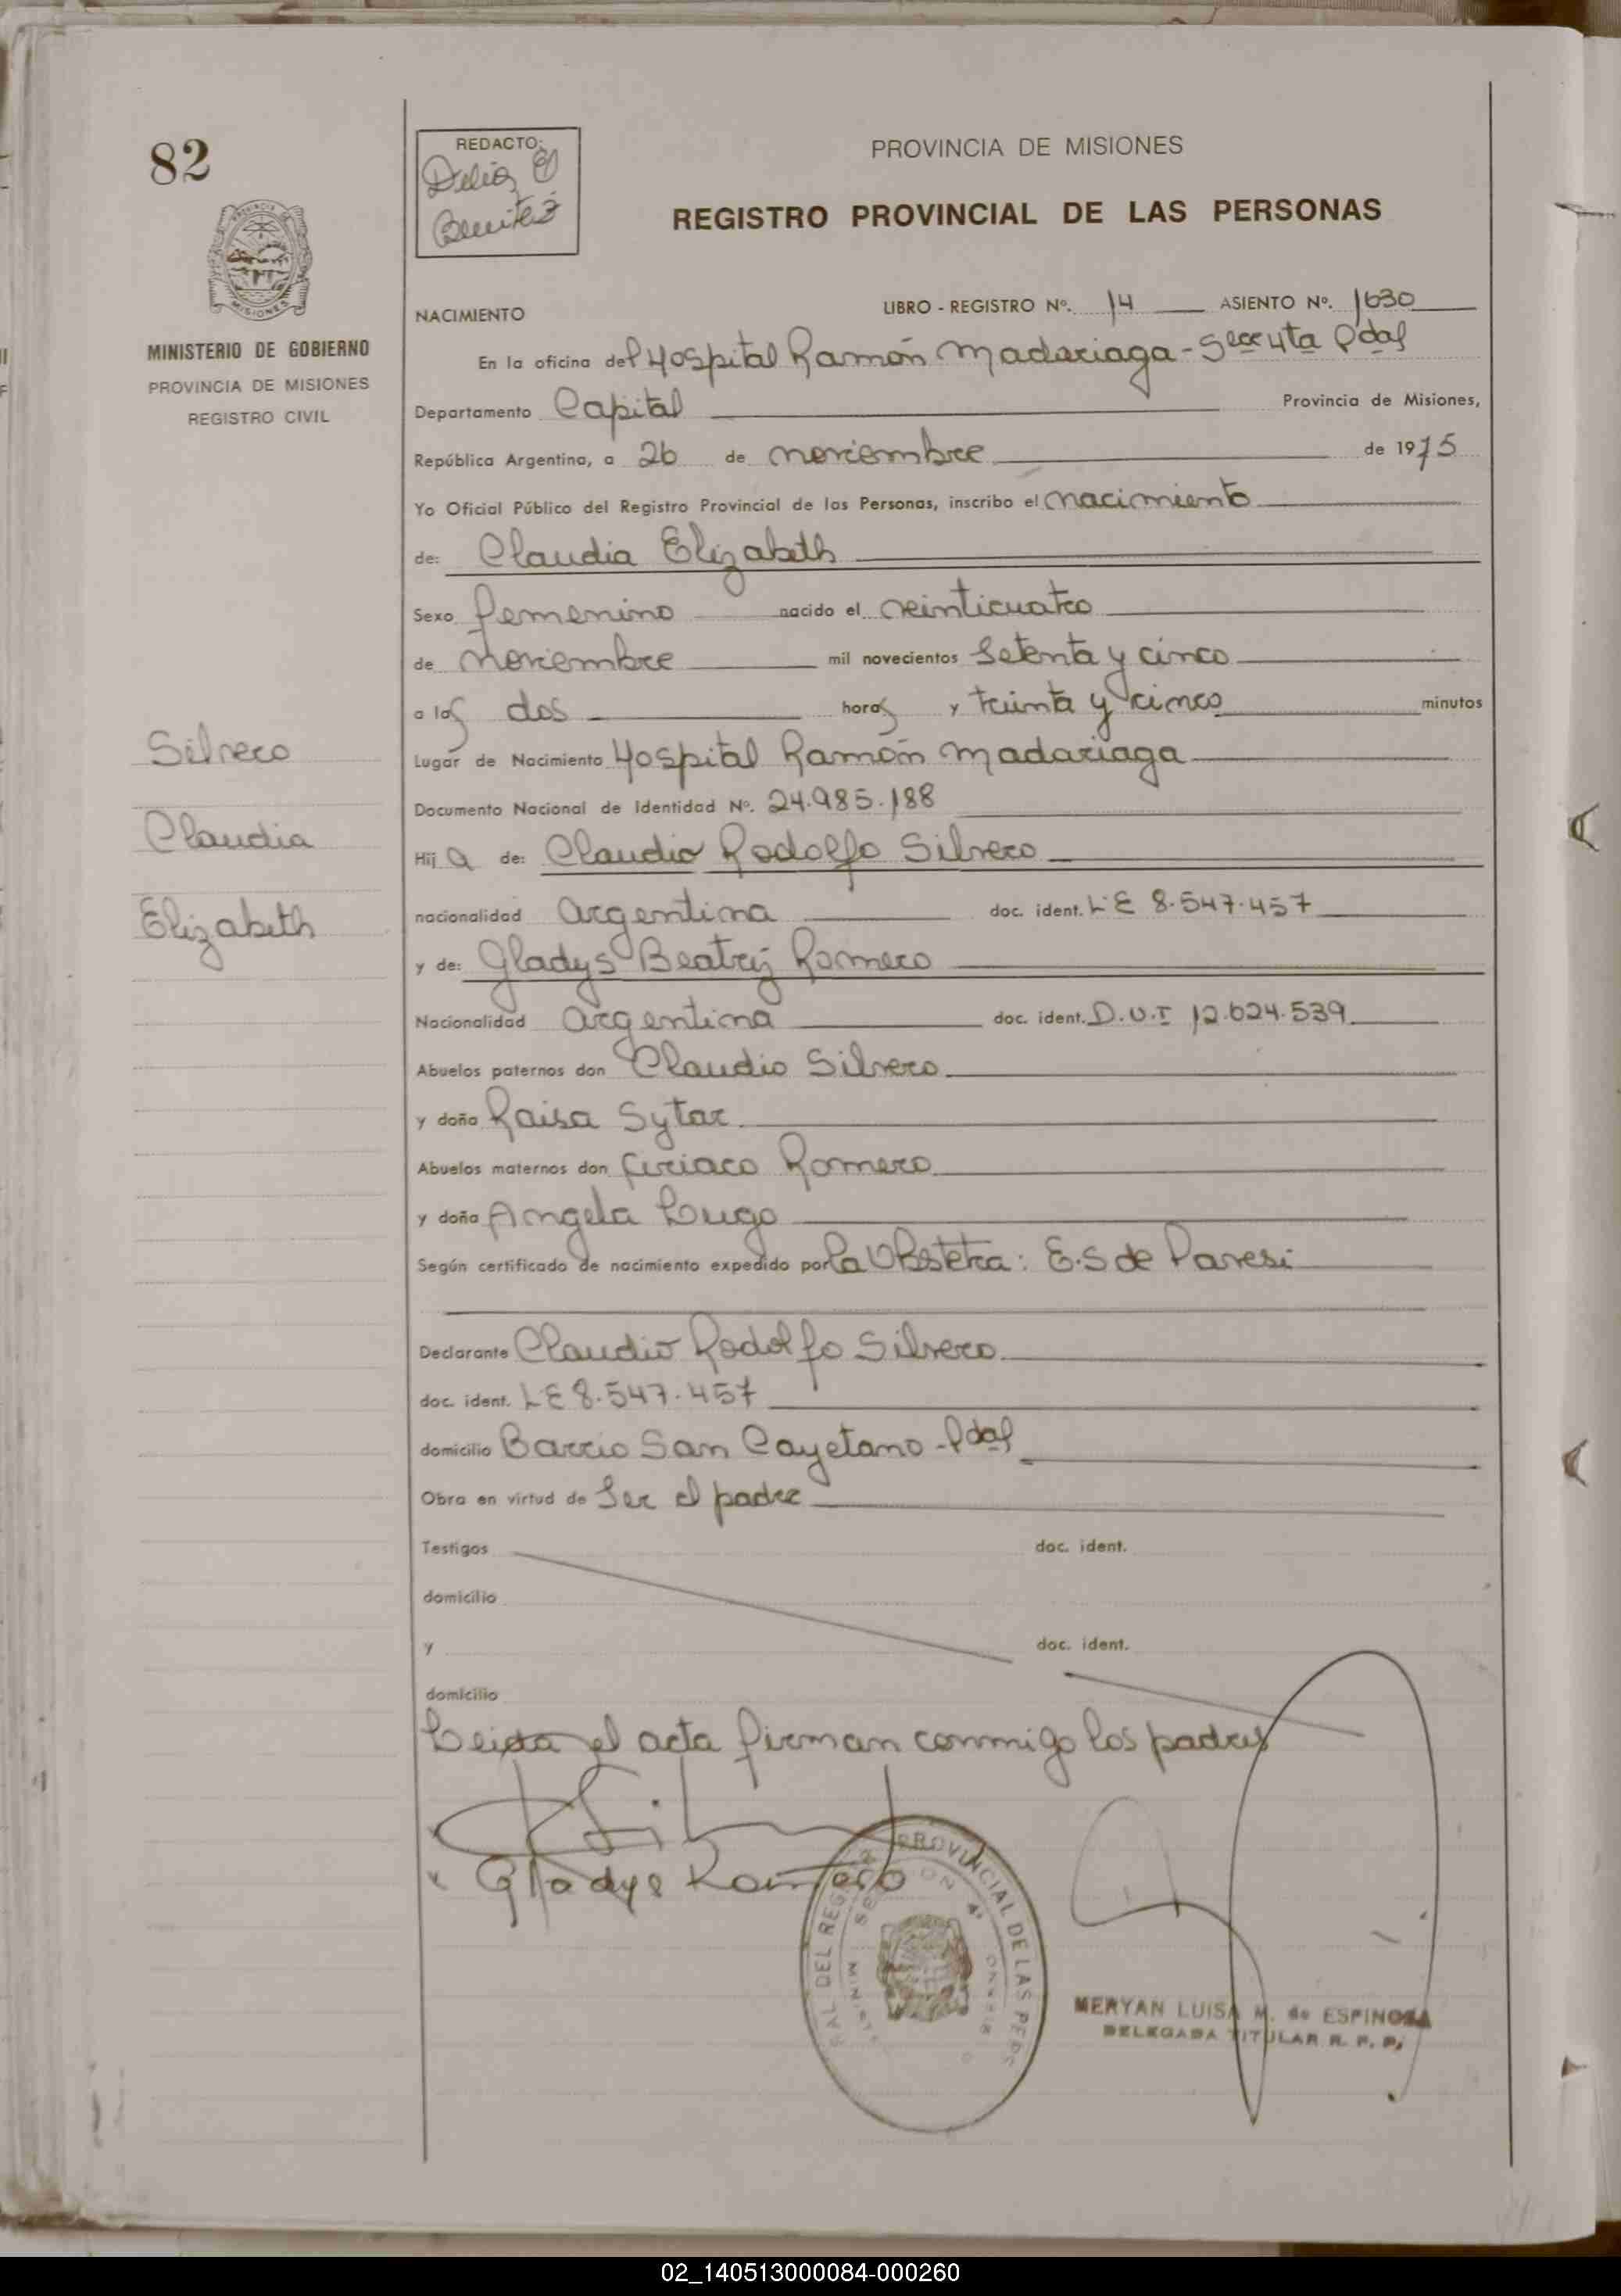 82
REDACTO:
Delia E
Benitez
PROVINCIA DE MISIONES
REGISTRO PROVINCIAL DE LAS PERSONAS
MISIONES
MINISTERIO DE GOBIERNO
PROVINCIA DE MISIONES
REGISTRO CIVIL
NACIMIENTO
LIBRO - REGISTRO Nº. 14 ASIENTO Nº. 1630
En la oficina del Hospital Ramón Madariaga - Secc 4ta Pdas
Departamento Capital Provincia de Misiones,
República Argentina, a 26 de noviembre de 1975
Yo Oficial Público del Registro Provincial de las Personas, inscribo el nacimiento
de: Claudia Elizabeth
Sexo femenino nacido el veinticuatro
de noviembre mil novecientos setenta y cinco
a las dos horas y treinta y cinco minutos
Lugar de Nacimiento Hospital Ramón Madariaga
Documento Nacional de Identidad Nº. 24.985.188
Hija de: Claudio Rodolfo Silvero
nacionalidad argentina doc. ident. L E 8.547.457
y de: Gladys Beatriz Romero
Nacionalidad argentina doc. ident. D.U.I 12.624.539
Abuelos paternos don Claudio Silvero
y doña Raisa Sytar
Abuelos maternos don Ciriaco Romero
y doña Angela Lugo
Según certificado de nacimiento expedido por la Obstetra: E.S de Pavesi
Declarante Claudio Rodolfo Silvero
doc. ident. L E 8.547.457
domicilio Barrio San Cayetano - Pdas
Obra en virtud de ser el padre
Testigos doc. ident.
domicilio
y doc. ident.
domicilio
Leida el acta firman conmigo los padres
Gladys Romero
MERYAN LUISA M. de ESPINOSA
DELEGADA TITULAR R. P. P.
Silvero
Claudia
Elizabeth
02_140513000084-000260